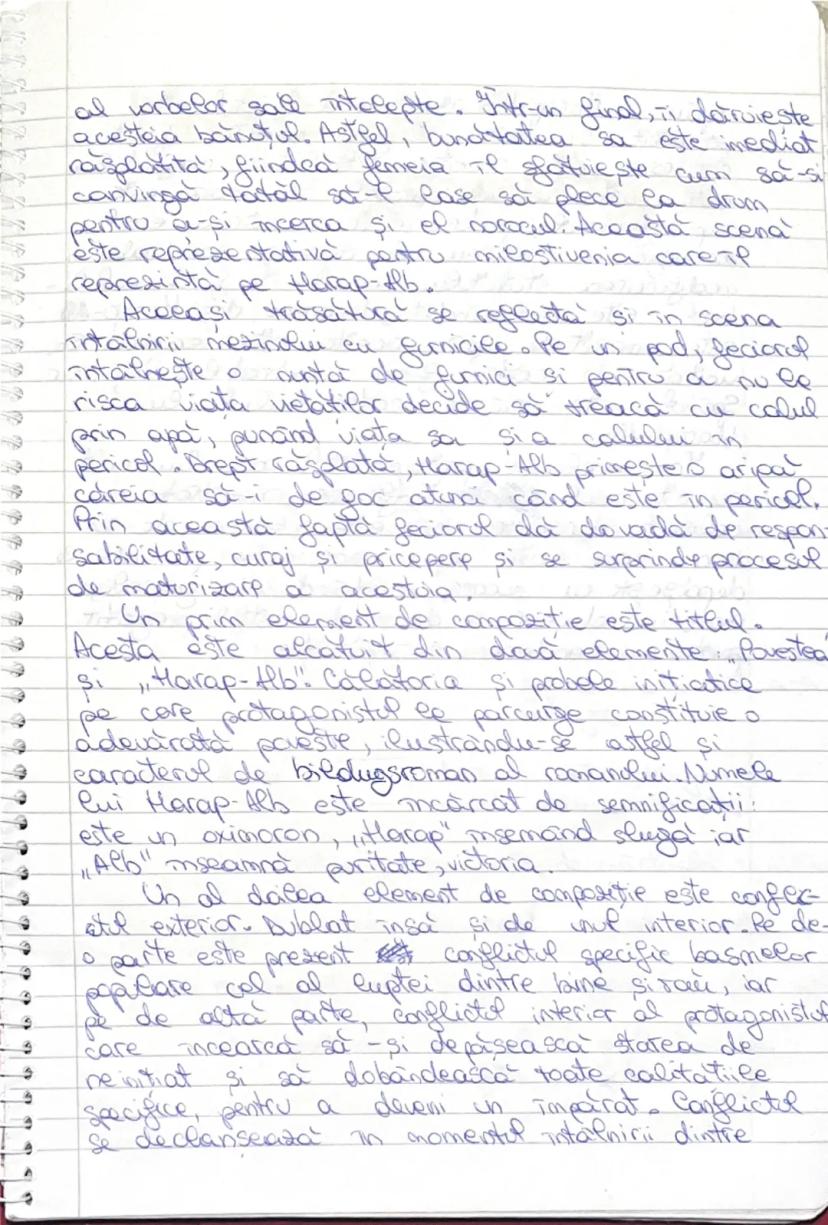 al vorbelor sale întelepte. Într-un final, îi dăruiește
acesteia bănuțul. Astfel, bunătatea sa este imediat
răsplătită, fiindcă femeia îl sfătuiește cum să-și
convingă tatăl să-l lase să plece la drum
pentru a-și încerca și el norocul. Această scenă
este reprezentativă pentru milostivenia care îl
reprezintă pe Harap-Alb.
Aceeași trăsătură se reflectă și în scena
întâlnirii mezinului cu furnicile. Pe un pod, feciorul
întâlnește o nuntă de furnici si pentru a nu le
risca viața vietăților decide să treacă cu calul
prin apă, punând viața sa și a calului în
pericol. Drept răsplată, Harap-Alb primește o aripă
căreia să-i de foc atunci când este în pericol.
Prin această faptă feciorul dă dovadă de respon-
sabilitate, curaj și pricepere și se surprinde procesul
de maturizare a acestuia.
Un prim element de compoziție este titlul.
Acesta este alcătuit din două elemente: „Povestea
și „Harap-Alb". Călătoria și probele inițiatice
pe care protagonistul le parcurge constituie o
adevărată poveste, ilustrându-se astfel și
caracterul de bildugsroman al romanului. Numele
lui Harap-Alb este încărcat de semnificații:
este un oximoron, „Harap" însemând slugă iar
„Alb" înseamnă puritate, victoria.
Un al doilea element de compoziție este conflic-
tul exterior. Dublat însă și de unul interior. Pe de-
o parte este prezent conflictul specific basmelor
populare cel al luptei dintre bine și rău, iar
pe de altă parte, conflictul interior al protagonistul
care încearcă să-și depășească starea de
neinițiat și să dobândească toate calitățiile
specifice, pentru a deveni un împărat. Conflictul
se declansează în momentul întâlnirii dintre